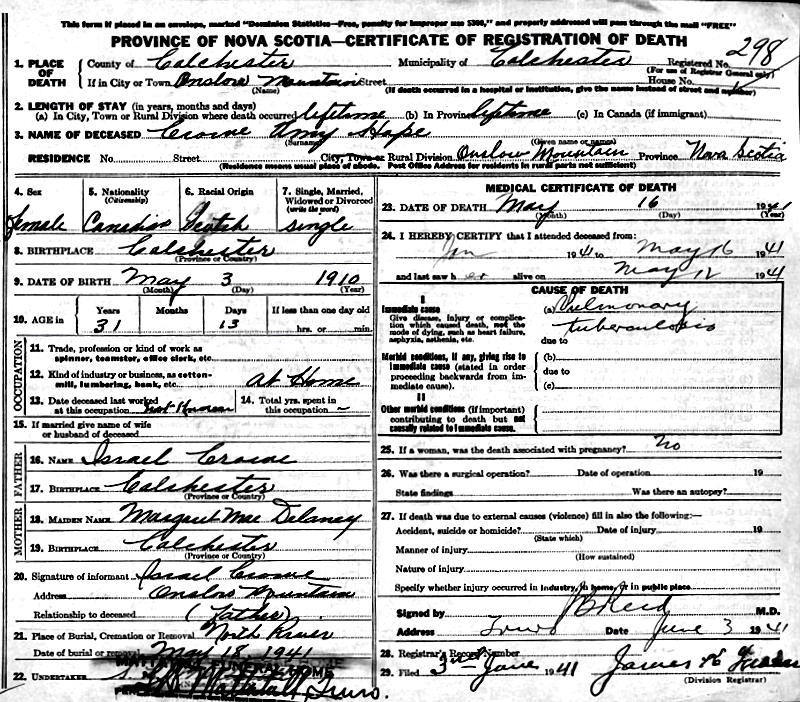 This form if placed in an envelope, marked "Dominion Statistics—Free, penalty for improper use $300," and properly addressed will pass through the mail "FREE"
PROVINCE OF NOVA SCOTIA—CERTIFICATE OF REGISTRATION OF DEATH
298
1. PLACE OF DEATH County of Colchester Municipality of Colchester Registered No.
(For use of Registrar General only)
If in City or Town Onslow Mountain Street House No.
(Name) (If death occurred in a hospital or institution, give the name instead of street and number)
2. LENGTH OF STAY (in years, months and days)
(a) In City, Town or Rural Division where death occurred lifetime (b) In Province lifetime (c) In Canada (if immigrant)
3. NAME OF DECEASED Crowe Amy Hope
(Surname) (Given name or names)
RESIDENCE No. Street City, Town or Rural Division Onslow Mountain Province Nova Scotia
(Residence means usual place of abode. Post Office Address for residents in rural parts not sufficient)
4. Sex 5. Nationality 6. Racial Origin 7. Single, Married, Widowed or Divorced
(Citizenship) (write the word)
female Canadian Scotch single
8. BIRTHPLACE Colchester
(Province or Country)
9. DATE OF BIRTH May 3 1910
(Month) (Day) (Year)
10. AGE in Years Months Days If less than one day old
31 13 hrs. or min.
OCCUPATION
11. Trade, profession or kind of work as spinner, teamster, office clerk, etc.
12. Kind of industry or business, as cotton-mill, lumbering, bank, etc. At Home
13. Date deceased last worked at this occupation Not Known 14. Total yrs. spent in this occupation –
15. If married give name of wife or husband of deceased
FATHER
16. NAME Israel Crowe
17. BIRTHPLACE Colchester
(Province or Country)
MOTHER
18. MAIDEN NAME Margaret Mae Delaney
19. BIRTHPLACE Colchester
(Province or Country)
20. Signature of informant Israel Crowe
Address Onslow Mountain
Relationship to deceased (Father)
21. Place of Burial, Cremation or Removal North River
Date of burial or removal May 18 1941
22. UNDERTAKER Mattatall, Truro.
MATTATALL FUNERAL HOME
MEDICAL CERTIFICATE OF DEATH
23. DATE OF DEATH May 16 1941
(Month) (Day) (Year)
24. I HEREBY CERTIFY that I attended deceased from:
Jan 1941 to May 16 1941
and last saw her alive on May 12 1941
CAUSE OF DEATH
I
Immediate cause (a) Pulmonary
Give disease, injury or complication which caused death, not the mode of dying, such as heart failure, asphyxia, asthenia, etc. tuberculosis
due to
Morbid conditions, if any, giving rise to immediate cause (stated in order proceeding backwards from immediate cause). (b)
due to
(c)
II
Other morbid conditions (if important) contributing to death but not causally related to immediate cause.
25. If a woman, was the death associated with pregnancy? No
26. Was there a surgical operation? Date of operation 19
State findings Was there an autopsy?
27. If death was due to external causes (violence) fill in also the following:—
Accident, suicide or homicide? Date of injury 19
(State which)
Manner of injury
(How sustained)
Nature of injury
Specify whether injury occurred in industry, in home, or in public place
Signed by Reid M.D.
Address Truro Date June 3 1941
28. Registrar's Record Number
29. Filed 3rd June 1941 James
(Division Registrar)